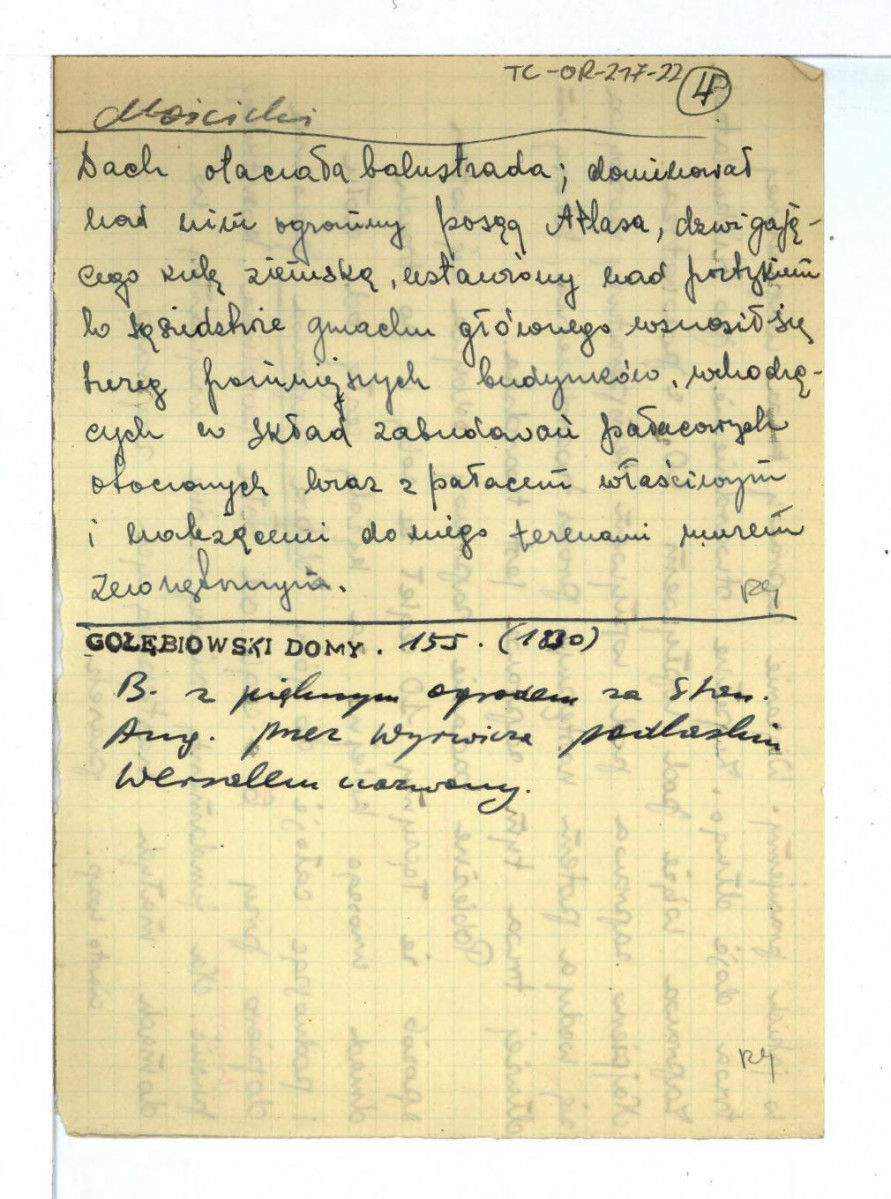 TC-OR-217-22 4
Mościcki
Dach otaczała balustrada; dominował
nad nim ogromny posąg Atlasa, dzwigają-
cego kulę ziemską, ustawiony nad portykiem
W sąsiedztwie gmachu głównego wznosił się
szereg pomniejszych budynków, wchodzą-
cych w skład zabudowań pałacowych
otoczonych wraz z pałacem właściwym
i należącemi do niego terenami murem
zewnętrznym.
GOŁĘBIOWSKI DOMY. 155. (1830)
B. z pięknym ogrodem za Stan.
Aug. przez Wyrwicza podlaskim
Wersalem nazwany.